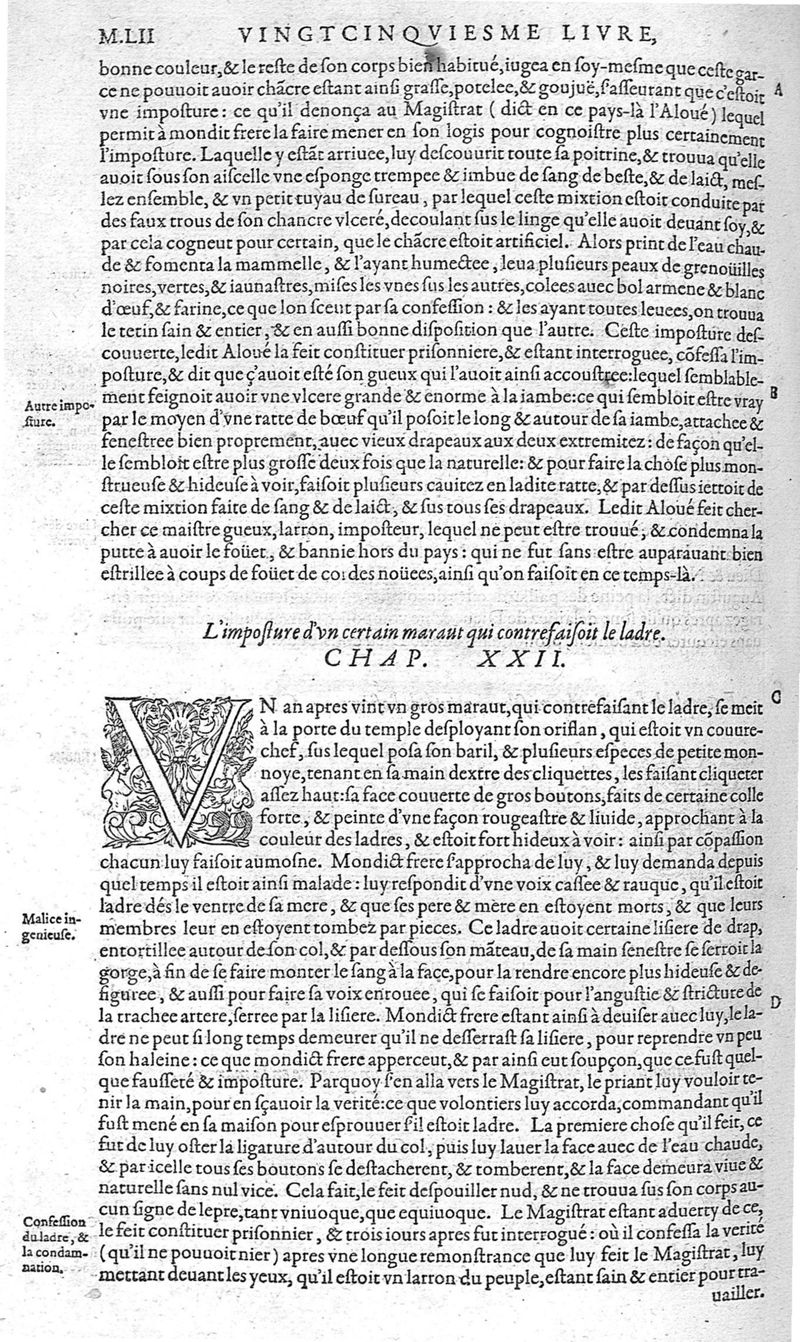 M.LII VINGTCINQVIESME LIVRE,
bonne couleur, & le reſte de ſon corps bien habitué, iugea en ſoy-meſme que ceſte gar-
ce ne pouuoit auoir chãcre eſtant ainſi graſſe, potelee, & goujuë, ſ'aſſeurant que c'eſtoit A
vne impoſture : ce qu'il denonça au Magiſtrat ( dict en ce pays-là l'Aloué) lequel
permit à mondit frere la faire mener en ſon logis pour cognoiſtre plus certainement
l'impoſture. Laquelle y eſtãt arriuee, luy deſcouurit toute ſa poitrine, & trouua qu'elle
auoit ſous ſon aiſcelle vne eſponge trempee & imbue de ſang de beſte, & de laict, meſ-
lez enſemble, & vn petit tuyau de ſureau, par lequel ceſte mixtion eſtoit conduite par
des faux trous de ſon chancre vlceré, decoulant ſus le linge qu'elle auoit deuant ſoy, &
par cela cogneut pour certain, que le chãcre eſtoit artificiel. Alors print de l'eau chau-
de & fomenta la mammelle, & l'ayant humectee, leua pluſieurs peaux de grenoüilles
noires, vertes, & iaunaſtres, miſes les vnes ſus les autres, colees auec bol armene & blanc
d'œuf, & farine, ce que lon ſceut par ſa confeſſion : & les ayant toutes leuees, on trouua
le tetin ſain & entier, & en auſſi bonne diſpoſition que l'autre. Ceſte impoſture deſ-
couuerte, ledit Aloué la feit conſtituer priſonniere, & eſtant interroguee, cõfeſſa l'im-
poſture, & dit que ç'auoit eſté ſon gueux qui l'auoit ainſi accouſtree: lequel ſemblable-
ment feignoit auoir vne vlcere grande & enorme à la iambe: ce qui ſembloit eſtre vray B
Autre impo-
ſture.
par le moyen d'vne ratte de bœuf qu'il poſoit le long & autour de ſa iambe, attachee &
feneſtree bien proprement, auec vieux drapeaux aux deux extremitez : de façon qu'el-
le ſembloit eſtre plus groſſe deux fois que la naturelle: & pour faire la choſe plus mon-
ſtrueuſe & hideuſe à voir, faiſoit pluſieurs cauitez en ladite ratte, & par deſſus iettoit de
ceſte mixtion faite de ſang & de laict, & ſus tous ſes drapeaux. Ledit Aloué feit cher-
cher ce maiſtre gueux, larron, impoſteur, lequel ne peut eſtre trouué, & condemna la
putte à auoir le foüet, & bannie hors du pays : qui ne fut ſans eſtre auparauant bien
eſtrillee à coups de foüet de cordes noüees, ainſi qu'on faiſoit en ce temps-là.
L'impoſture d'vn certain maraut qui contrefaiſoit le ladre.
CHAP. XXII.
VN an apres vint vn gros maraut, qui contrefaiſant le ladre, ſe meit C
à la porte du temple deſployant ſon oriflan, qui eſtoit vn couure-
chef, ſus lequel poſa ſon baril, & pluſieurs eſpeces de petite mon-
noye, tenant en ſa main dextre des cliquettes, les faiſant cliqueter
aſſez haut: ſa face couuerte de gros boutons, faits de certaine colle
forte, & peinte d'vne façon rougeaſtre & liuide, approchant à la
couleur des ladres, & eſtoit fort hideux à voir : ainſi par cõpaſſion
chacun luy faiſoit aumoſne. Mondict frere ſ'approcha de luy, & luy demanda depuis
quel temps il eſtoit ainſi malade : luy reſpondit d'vne voix caſſee & rauque, qu'il eſtoit
ladre dés le ventre de ſa mere, & que ſes pere & mere en eſtoyent morts, & que leurs
Malice in-
genieuſe.
membres leur en eſtoyent tombez par pieces. Ce ladre auoit certaine liſiere de drap,
entortillee autour de ſon col, & par deſſous ſon mãteau, de ſa main ſeneſtre ſe ſerroit la
gorge, à fin de ſe faire monter le ſang à la façe, pour la rendre encore plus hideuſe & de-
figuree, & auſſi pour faire ſa voix enrouee, qui ſe faiſoit pour l'anguſtie & ſtricture de D
la trachee artere, ſerree par la liſiere. Mondict frere eſtant ainſi à deuiſer auec luy, le la-
dre ne peut ſi long temps demeurer qu'il ne deſſerraſt ſa liſiere, pour reprendre vn peu
ſon haleine : ce que mondict frere apperceut, & par ainſi eut ſoupçon, que ce fuſt quel-
que fauſſeté & impoſture. Parquoy ſ'en alla vers le Magiſtrat, le priant luy vouloir te-
nir la main, pour en ſçauoir la verité: ce que volontiers luy accorda, commandant qu'il
fuſt mené en ſa maiſon pour eſprouuer ſ'il eſtoit ladre. La premiere choſe qu'il feit, ce
fut de luy oſter la ligature d'autour du col, puis luy lauer la face auec de l'eau chaude,
& par icelle tous ſes boutons ſe deſtacherent, & tomberent, & la face demeura viue &
naturelle ſans nul vice. Cela fait, le feit deſpouiller nud, & ne trouua ſus ſon corps au-
cun ſigne de lepre, tant vniuoque, que equiuoque. Le Magiſtrat eſtant aduerty de ce,
Confeſſion
du ladre, &
la condam-
nation.
le feit conſtituer priſonnier, & trois iours apres fut interrogué : où il confeſſa la verité
(qu'il ne pouuoit nier) apres vne longue remonſtrance que luy feit le Magiſtrat, luy
mettant deuant les yeux, qu'il eſtoit vn larron du peuple, eſtant ſain & entier pour tra-
uailler.